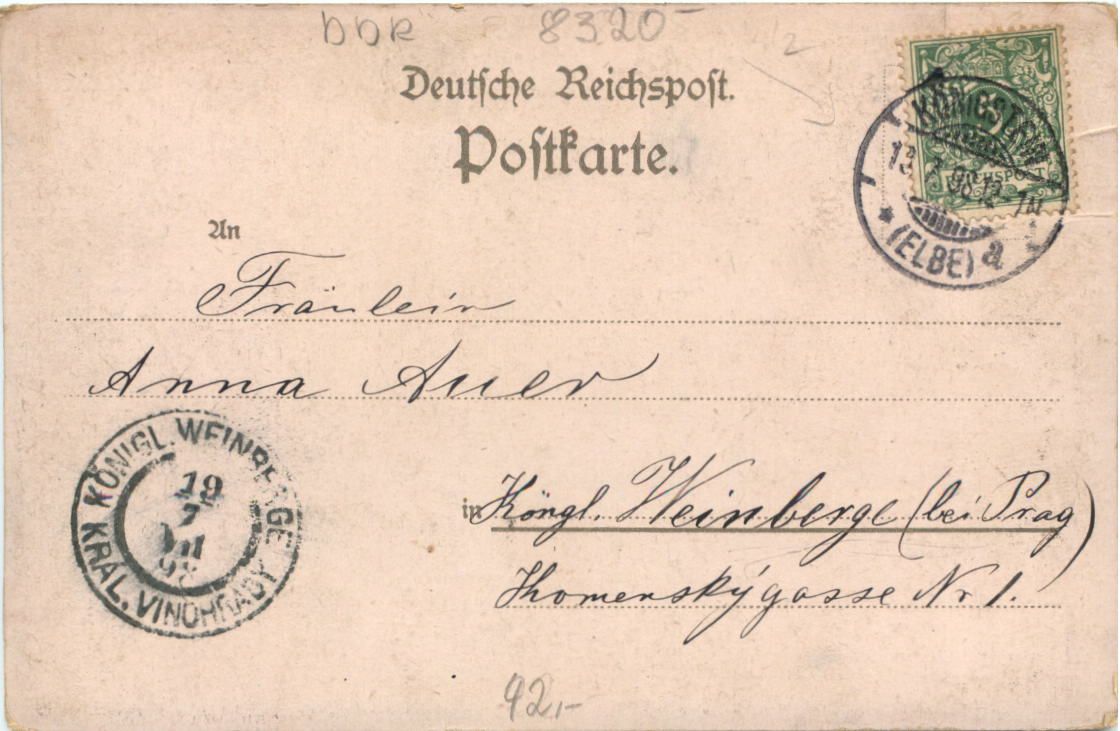 DDR 8320-
Deutsche Reichspost.
Postkarte.
5
REICHSPOST
KÖNIGSTEIN
(ELBE) a
An
Fräulein
Anna Auer
in Köngl. Weinberge (bei Prag)
Komenskýgasse Nr 1.
KÖNIGL. WEINBERGE
19
7
VII
98
KRÁL. VINOHRADY
92,-